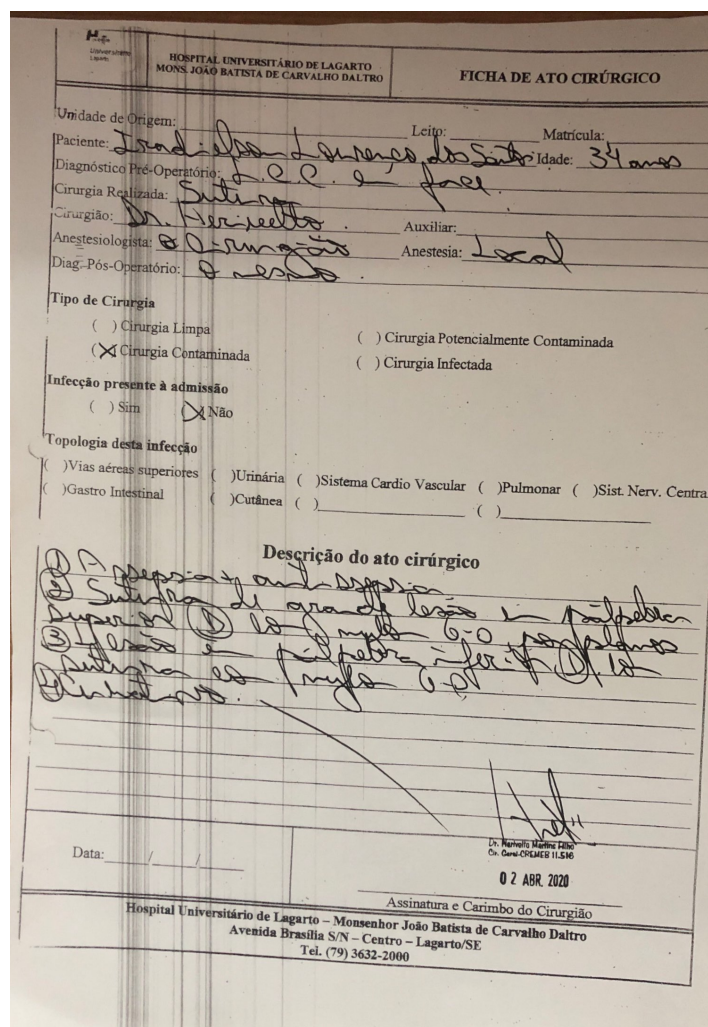 Universitário
Lagarto
HOSPITAL UNIVERSITÁRIO DE LAGARTO
MONS. JOÃO BATISTA DE CARVALHO DALTRO
FICHA DE ATO CIRÚRGICO
Unidade de Origem: Leito: Matrícula:
Paciente: Lourenço dos Santos Idade: 34 anos
Diagnóstico Pré-Operatório: L.C.C. em face.
Cirurgia Realizada: Sutura
Cirurgião: Dr. Auxiliar:
Anestesiologista: O Cirurgião Anestesia: Local
Diag. Pós-Operatório: O mesmo.
Tipo de Cirurgia
( ) Cirurgia Limpa ( ) Cirurgia Potencialmente Contaminada
(X) Cirurgia Contaminada ( ) Cirurgia Infectada
Infecção presente à admissão
( ) Sim (X) Não
Topologia desta infecção
( )Vias aéreas superiores ( )Urinária ( )Sistema Cardio Vascular ( )Pulmonar ( )Sist. Nerv. Centra
( )Gastro Intestinal ( )Cutânea ( ) ( )
Descrição do ato cirúrgico
① Assepsia + antissepsia
② Sutura de grande lesão em pálpebra
superior Ⓓ com mylon 6-0 por planos
③ Lesão em pálpebra inferior Ⓓ. com
sutura com mylon 6-0
④ Curativo.
Dr. Martins Filho
Cir. Geral-CREMEB 11.516
02 ABR. 2020
Data: / /
Assinatura e Carimbo do Cirurgião
Hospital Universitário de Lagarto – Monsenhor João Batista de Carvalho Daltro
Avenida Brasília S/N – Centro – Lagarto/SE
Tel. (79) 3632-2000